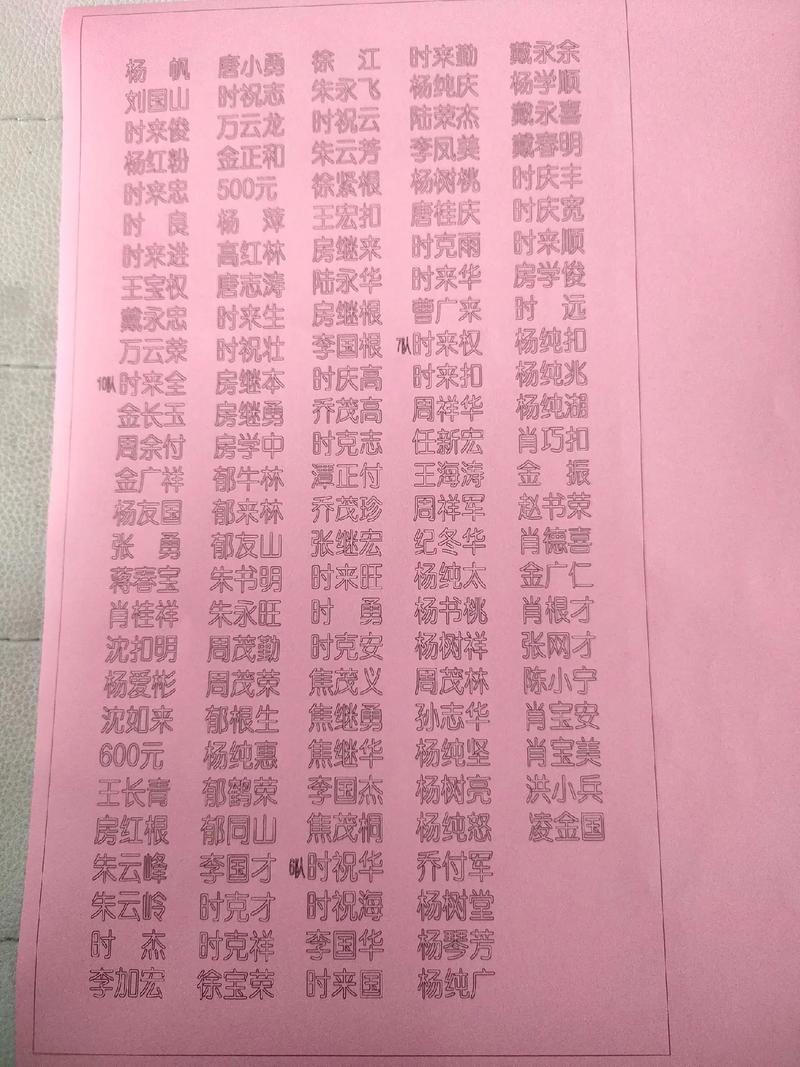 杨 帆
刘国山
时来俊
杨红粉
时来忠
时 良
时来进
王宝权
戴永忠
万云荣
10队时来全
金长玉
周余付
金广祥
杨友国
张 勇
蒋春宝
肖桂祥
沈扣明
杨爱彬
沈如来
600元
王长青
房红根
朱云峰
朱云岭
时 杰
李加宏
唐小勇
时祝志
万云龙
金正和
500元
杨 萍
高红林
唐志涛
时来生
时祝壮
房继本
房继勇
房学中
郁牛林
郁来林
郁友山
朱书明
朱永旺
周茂勤
周茂荣
郁根生
杨纯惠
郁鹤荣
郁同山
李国才
时克才
时克祥
徐宝荣
徐 江
朱永飞
时祝云
朱云芳
徐紧根
王宏扣
房继来
陆永华
房继根
李国根
时庆高
乔茂高
时克志
潭正付
乔茂珍
张继宏
时来旺
时 勇
时克安
焦茂义
焦继勇
焦继华
李国杰
焦茂桐
6队时祝华
时祝海
李国华
时来国
时来勤
杨纯庆
陆荣杰
李凤美
杨树桃
唐桂庆
时克雨
时来华
曹广来
7队时来权
时来扣
周祥华
任新宏
王海涛
周祥军
纪冬华
杨纯太
杨书桃
杨树祥
周茂林
孙志华
杨纯坚
杨树亮
杨纯怒
乔付军
杨树堂
杨琴芳
杨纯广
戴永余
杨学顺
戴永喜
戴春明
时庆丰
时庆宽
时来顺
房学俊
时 远
杨纯扣
杨纯兆
杨纯湖
肖巧扣
金 振
赵书荣
肖德喜
金广仁
肖根才
张网才
陈小宁
肖宝安
肖宝美
洪小兵
凌金国